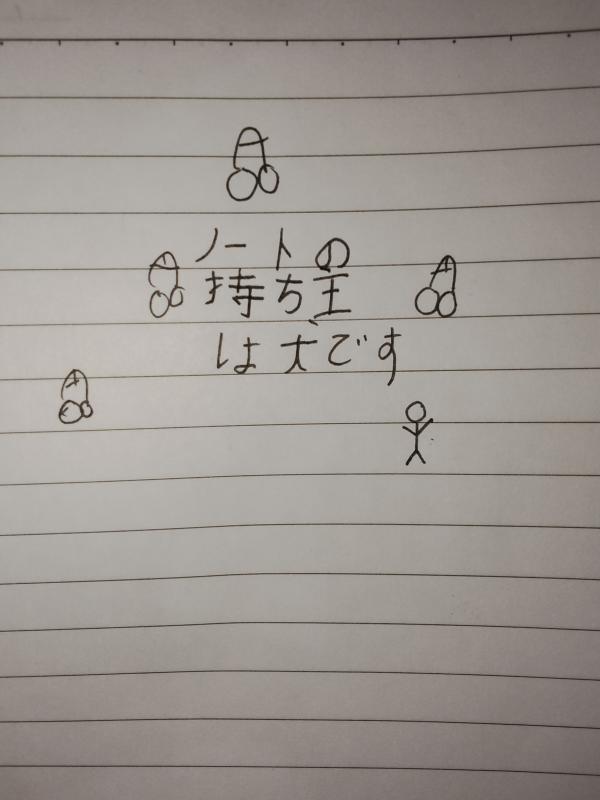 ノートの
持ち王
は犬です